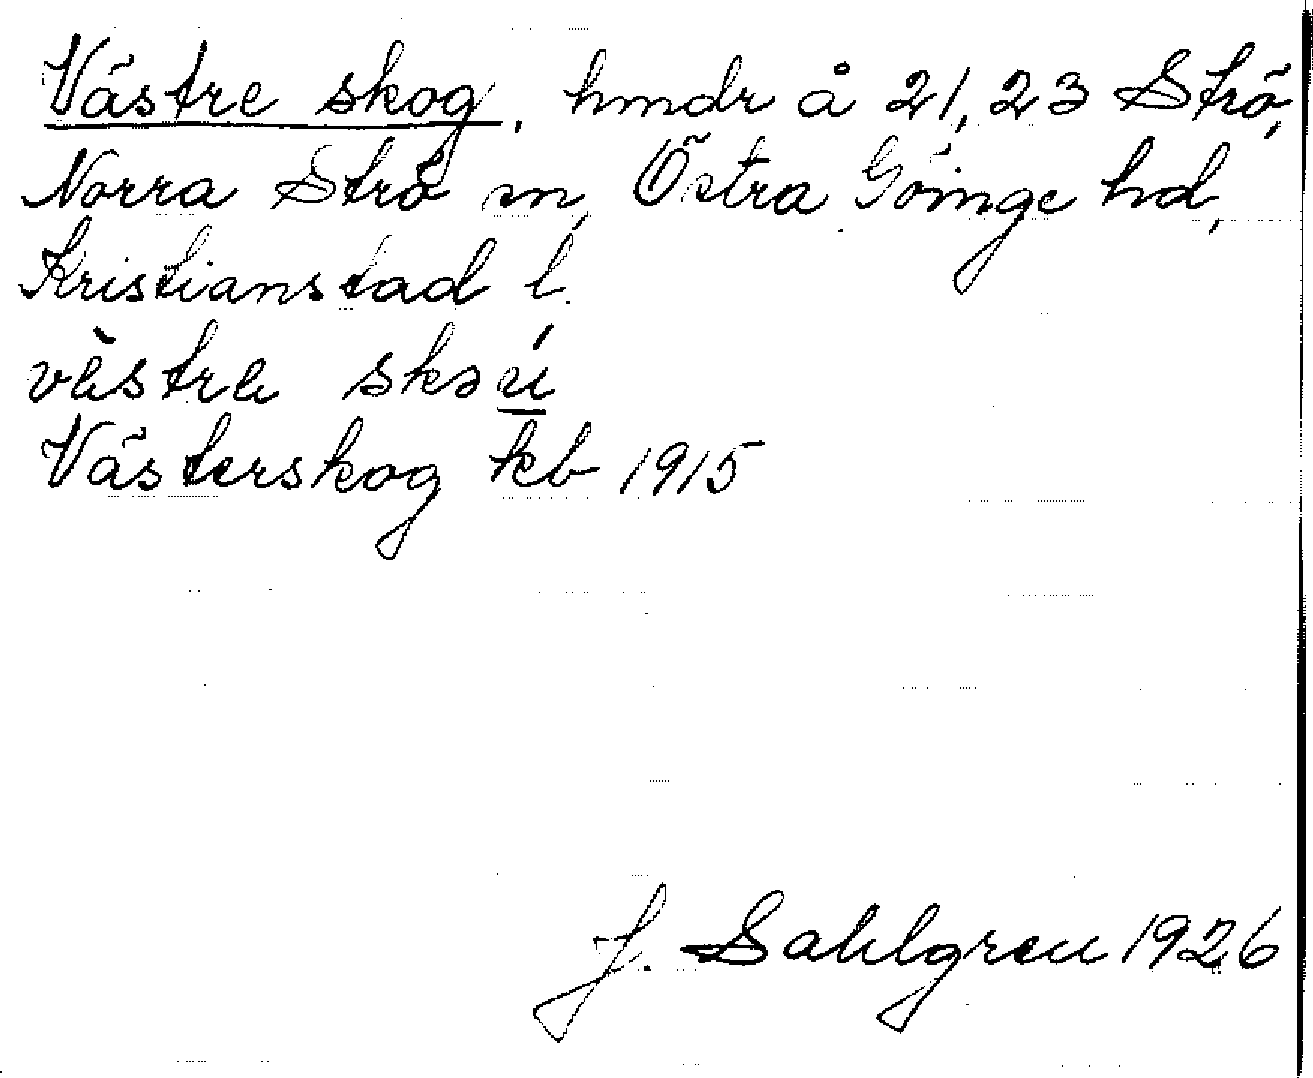 Västre skog, hmdr å 21, 23 Strö,
Norra Strö sn, Östra Göinge hd,
Kristianstad l.
vɛ̀strɛ skɔú
Västerskog kb 1915
J. Sahlgren 1926